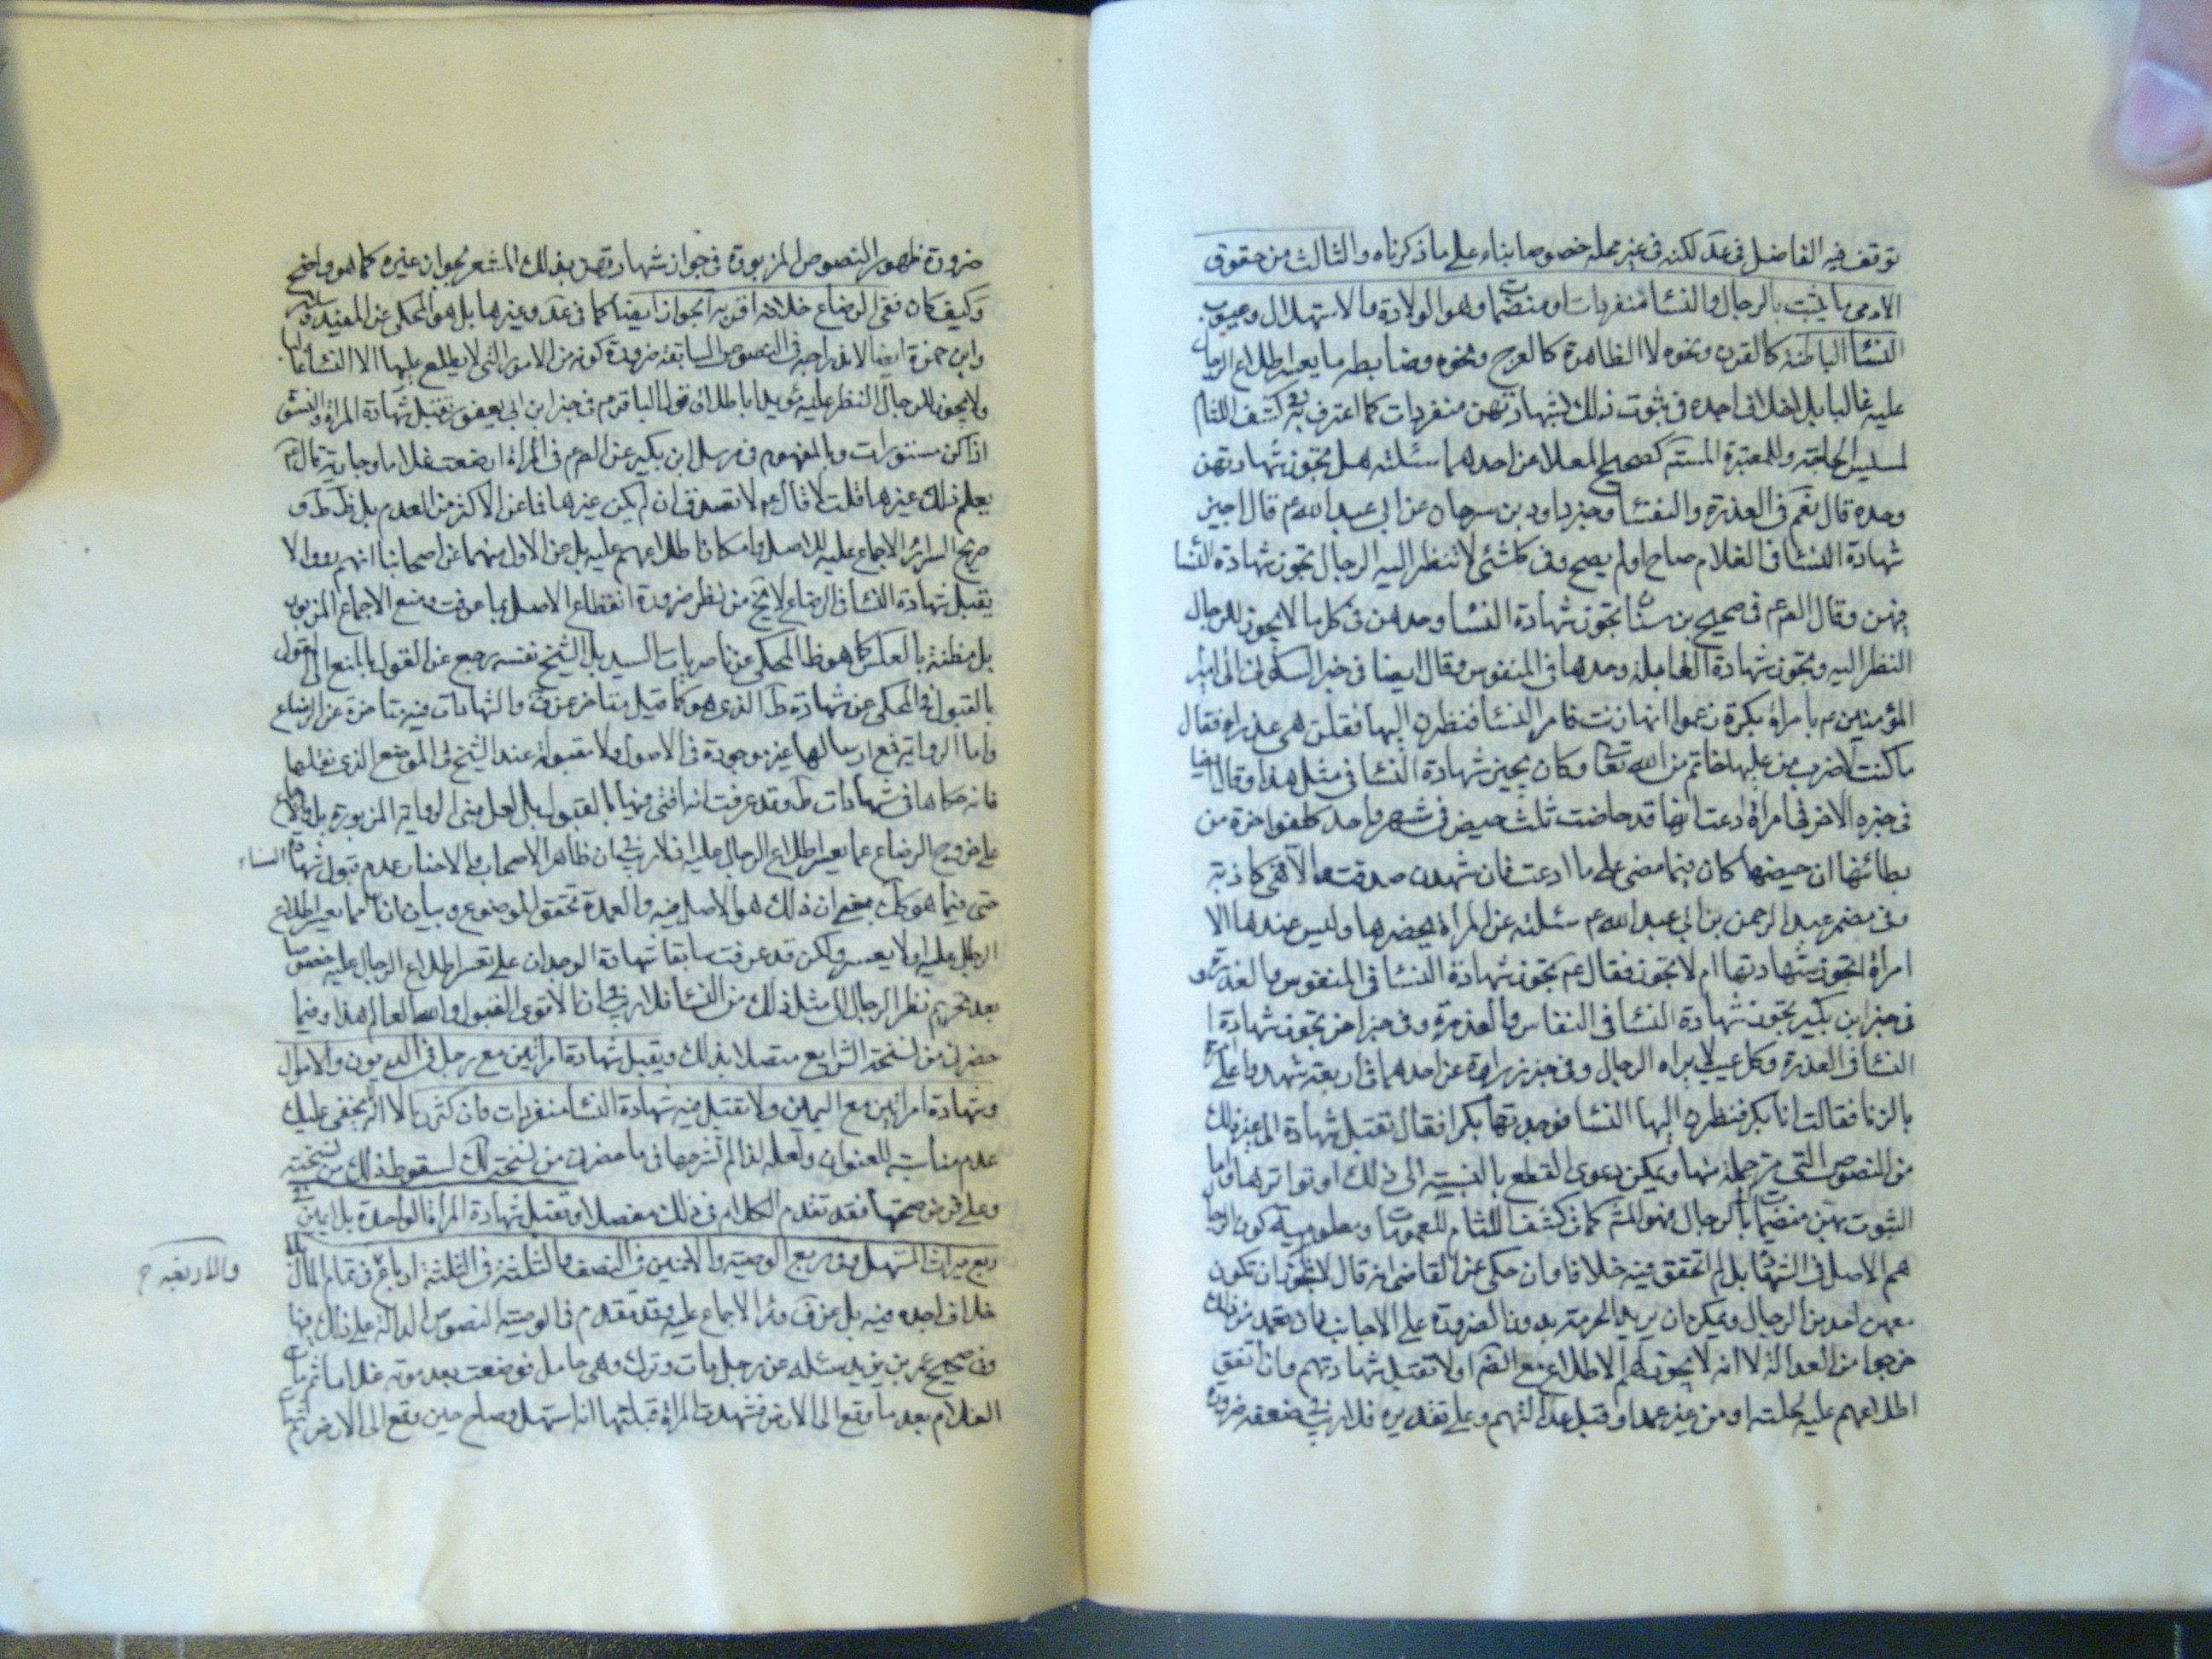 توقف فيه الفاضل فى عد لكنه فى غير محله خصوصا بناء على ما ذكرناه والثالث من حقوق
الآدمى ما يثبت بالرجال والنسآء منفردات او منضمات وهو الولادة والاستهلال وعيوب
النسآء الباطنة كالقرن ونحوه لا الظاهرة كالعرج ونحوه وضابطه ما يعسر اطلاع الرجال
عليه غالبا بلا خلاف اجده فى ثبوت ذلك بشهادتهن منفردات كما اعترف به فى كشف اللثام
لمسيس الحاجة وللمعتبرة المستم كصحيح العلا عن احدهما سئلته هل تجوز شهادتهن
وحده قال نعم فى العذرة والنفسآء وخبر داود بن سرحان عن ابى عبد الله ع قال اجيز
شهادة النسآء فى الغلام صاح او لم يصح وفى كل شئ لا تنظر اليه الرجال تجوز شهادة النسآء
فيهن وقال الص ع فى صحيح بن سنان تجوز شهادة النسآء وحدهن فى كل ما لا يجوز للرجال
النظر اليه وتجوز شهادة القابلة وحدها فى المنفوس وقال ايضا فى خبر السكونى اتى امير
المؤمنين ع بامرأة بكرة زعموا انها زنت فامر النسآء فنظرن اليها فقلن هى عذراء فقال
ما كنت لاضرب من عليها خاتم من الله تعا وكان يجيز شهادة النسآء فى مثل هذا وقال ايضا
فى خبره الاخر فى امرأة ادعت انها قد حاضت ثلث حيض فى شهر واحد كلفوا خرة من
بطائنها ان حيضها كان فيما مضى على ما ادعت فان شهدن صدقت والا فهى كاذبة
وفى مضمر عبد الرحمن بن ابى عبد الله ع سئلته عن المرأة يحضرها وليس عندها الا
امرأة اتجوز شهادتها ام لا تجوز فقال ع تجوز شهادة النسآء فى المنفوس والعذرة و
فى خبر ابن بكير تجوز شهادة النسآء فى النفاس والعذرة وفى خبر اخر تجوز شهادة
النسآء فى العذرة وكل عيب لا يراه الرجال وفى خبر زرارة عن احدهما فى اربعة شهدوا على امرأة
بالزنا فقالت انا بكر فنظرن اليها النسآء فوجدتها بكرا فقال تقبل شهادة الى غير ذلك
من النصوص التى مر جملة منها ويمكن دعوى القطع بالنسبة الى ذلك او تواترها واما
الثبوت بهن منضمات بالرجال فهو المش كما فى كشف اللثام للعمومات ومعلومية كون الرجال
هم الاصل فى الشهادة بل لم اتحقق فيه خلافا وان حكى عن القاضى انه قال لا يجوز ان تكون
معهن احد من الرجال ويمكن ان يريد الحرمة بدون الضرورة على الاجانب فان تعمد من ذلك
خرجوا من العدالة لا انه لا يجوز لهم الاطلاع مع الضم او لا تقبل شهادتهم فان اتفق
اطلاعهم عليه لحلية او من غير عمد او قبل عدالتهم وعلى تقديره فلا ريب فى ضعفه ضرورة
ضرورة ظهور النصوص المزبورة فى جواز شهادتهن بذلك المشعر بجواز غيره كما هو واضح
وكيف كان ففى الرضاع خلاف اقربه الجواز ايضا كما فى عد وغيرها بل هو المحكى عن المفيد
وابن حمزة ايضا لاندراجه فى النصوص السابقة ضرورة كونه من الامور التى لا يطلع عليها الا النسآء غالبا
ولا يجوز للرجال النظر عليه مؤيدا باطلاق قول الباقر ع فى خبر ابن ابى يعفور تقبل شهادة المرأة والنسوة
اذا كن مستورات وبالمفهوم فى مرسل ابن بكير عن الص ع فى امرأة ارضعت غلاما وجارية قال
يعلم ذلك غيرها قلت لا قال ع لا تصدق ان لم يكن غيرها فما عن الاكثر من العدم بل ظ ط و
صريح السرائر الاجماع عليه للاصل وامكان اطلاعهم عليه بل عن الاول منهما عن اصحابنا انهم رووا لا
يقبل شهادة النسآء فى الرضاع لا يخ من نظر ضرورة انقطاع الاصل بما عرفت ومنع الاجماع المزبور
بل مظنة بالعكس كما هو ظ المحكى عن ناصريات السيد بل الشيخ نفسه رجع عن القول بالمنع الى القول
بالقبول فى المحكى عن شهادة ط الذى هو كما قيل متاخر عن ف والشهادات فيه متاخرة عن الرضاع
واما الرواية فمع ارسالها غير موجودة فى الاصول ولا مقبولة عند الشيخ فى الموضع الذى نقلها
فانه حكاها فى شهادات ط وقد عرفت انه افتى فيها بالقبول بل لعل مبنى الرواية المزبورة بل والاجماع
على خروج الرضاع عما يعسر اطلاع الرجال عليه فلا ريب فى ان ظاهر الاصحاب والاخبار عدم قبول شهادة النساء
حتى فيما هو كك بمعنى ان ذلك هو الاصل فيه والعمدة تحقق الموضوع وبيان انه مما يعسر اطلاع
الرجال عليه او لا يعسر ولكن قد عرفت سابقا شهادة الوجدان على تعسر اطلاع الرجال عليه خصوصا
بعد تحريم نظر الرجال الى مثل ذلك من النسآء فلا ريب فى ان الاقوى القبول والله العالم هذا وفيما
حضرنى من نسخة الشرايع متصلا بذلك ويقبل شهادة امرأتين مع رجل فى الديون والاموال
وشهادة امرأتين مع اليمين ولا تقبل فيه شهادة النسآء منفردات وان كثرن الا انه لا يخفى عليك
عدم مناسبته للعنوان ولعله لذا لم تشرحها فى ما حضرنى من نسخة لك لسقوط ذلك من نسخته
وعلى فرض صحتها فقد تقدم الكلام فى ذلك مفصلا وتقبل شهادة المرأة الواحدة بلا يمين فى
ربع ميراث المستهل وفى ربع الوصية والاثنين فى النصف والثلثة فى الثلثة ارباع فى تمام المال بلا
والاربعة
خلاف اجده فيه بل عن ف وئر الاجماع عليه وقد تقدم فى الوصية النصوص الدالة على ذلك فيها
وفى صحيح عمر بن يزيد سئله عن رجل مات وترك وهى حامل فوضعت بعد موته غلاما ثم مات
الغلام بعد ما وقع الى الارض فشهدت المرأة قبلتها انه استهل وصاح حين وقع الى الارض ثم مات